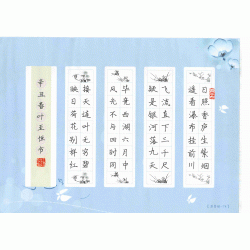 日照香炉生紫烟
遥看瀑布挂前川
飞流直下三千尺
疑是银河落九天
毕竟西湖六月中
风光不与四时同
接天莲叶无穷碧
映日荷花别样红
辛丑春叶玉书